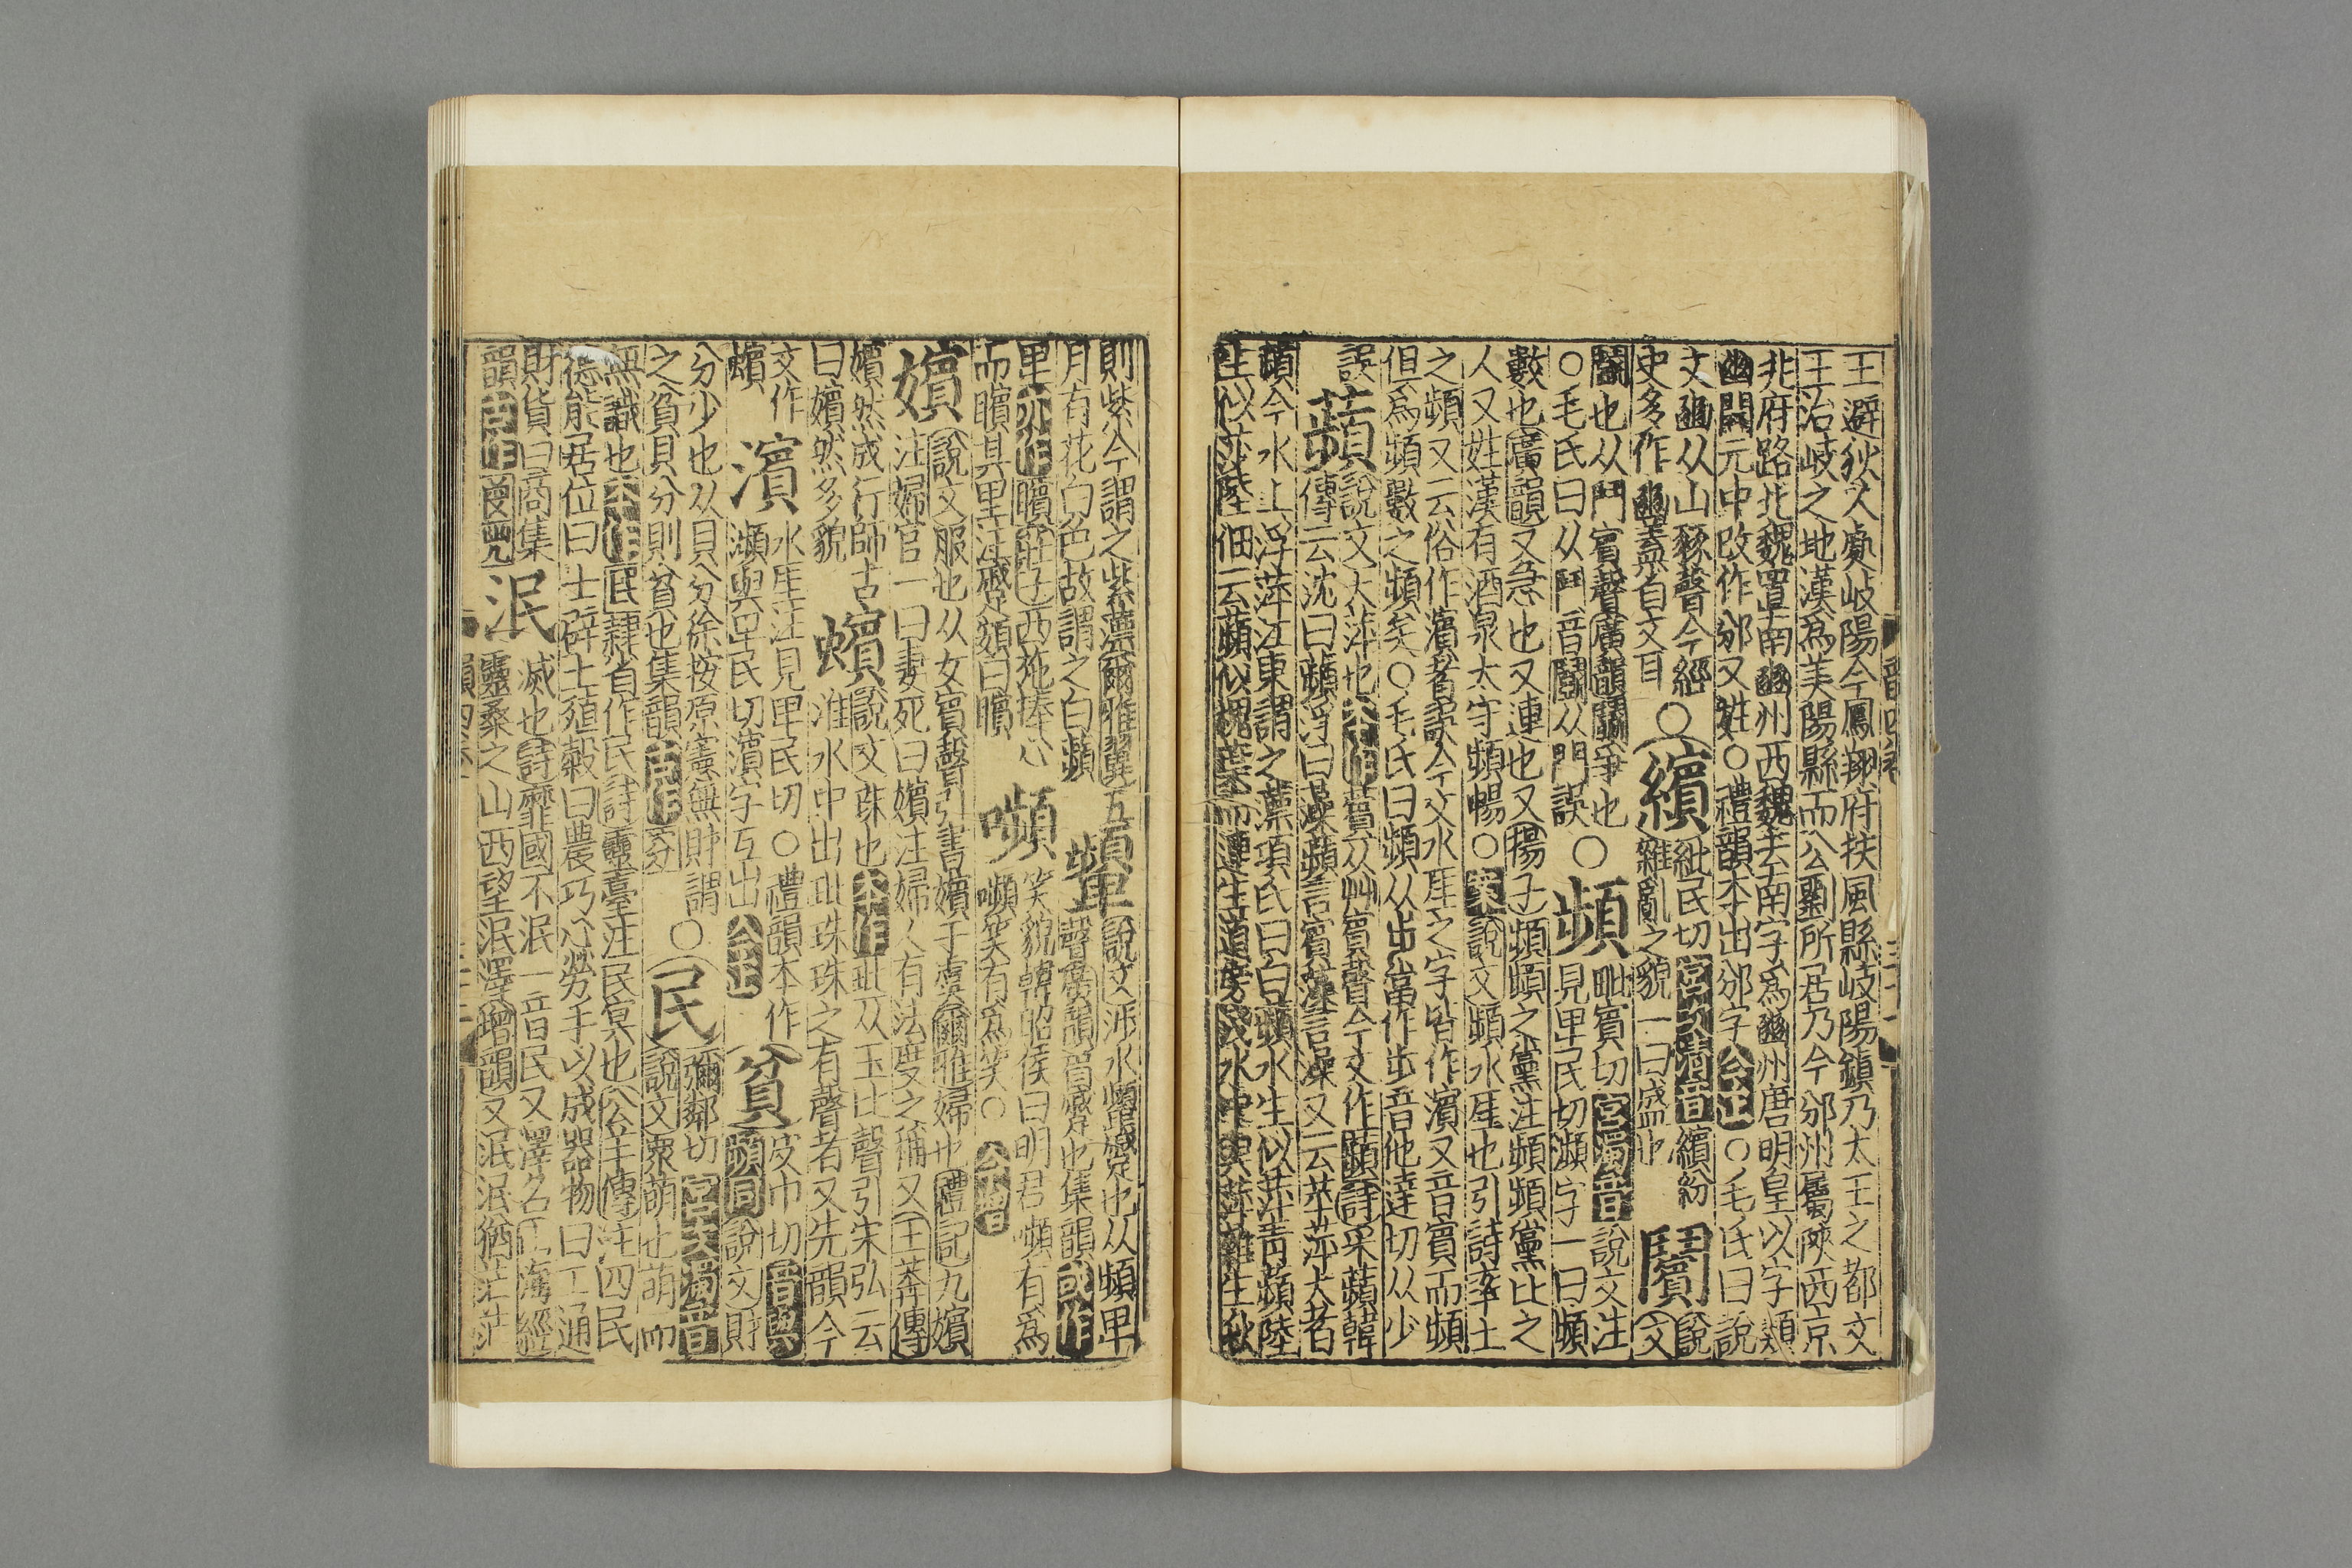 王避狄人處岐陽今鳳翔府扶風縣岐陽鎮乃太王之都文
王治岐之地漢爲美陽縣而公劉所居乃今邠州屬陝西京
兆府路北魏置南豳州西魏去南字爲豳州唐明皇以字類
幽開元中改作邠又姓○禮韻本出邠字今正○毛氏曰說
文豳从山豩聲今經
史多作豳蓋自文耳
○繽紕民切宮次清音繽紛
雜亂之貌一曰盛也
闠說文
鬭也从鬥賓聲廣韻鬭爭也
○毛氏曰从鬥音鬭从門誤
○頻毗賓切宮濁音說文注
見卑民切瀕字一曰頻
數也廣韻又急也又連也又揚子頻頻之黨注頻頻黨比之
人又姓漢有酒泉太守頻暢○說文頻水厓也引詩率土
之頻又云俗作濱者誤今文水厓之字皆作濱又音賓而頻
但爲頻數之頻矣○毛氏曰頻从步當作步音他達切从少
誤
蘋說文大萍也本作薲从艸賓聲今文作蘋詩采蘋韓
傳云沈曰蘋浮曰藻蘋言賓藻言澡又云苹萍大者
蘋今水上浮萍江東謂之薸項氏曰白蘋水生似萍青蘋陸
生似莎陸佃云蘋似槐葉而連生道旁淺水中與萍雜生秋
則紫今謂之紫薸爾雅翼五
月有花白色故謂之白蘋
顰說文涉水顰蹙也从頻卑
聲廣韻眉蹙也集韻或作
卑亦作矉莊子西施捧心
而矉其里注蹙頞曰矉
嚬笑貌韓昭侯曰明君嚬有爲
嚬笑有爲笑○今增
嬪說文服也从女賓聲引書嬪于虞爾雅婦也禮記九嬪
注婦官一曰妻死曰嬪注婦人有法度之稱又王莽傳
嬪然成行師古
曰嬪然多貌
蠙說文蚌也本作玭从玉比聲引宋弘云
淮水中出玭珠珠之有聲者又先韻今
文作
蠙
濱水厓注見卑民切○禮韻本作
瀕與卑民切濱字互出今正
貧皮巾切音與
頻同說文財
分少也从貝分徐按原憲無財謂
之貧貝分則貧也集韻古作穷
○民彌鄰切宮次濁音
說文衆萌也萌而
無識也本作民隸省作民詩靈臺注民冥也公羊傳注四民
德能居位曰士辟土殖穀曰農巧心勞手以成器物曰工通
財貨曰商集
韻古作
泯滅也詩靡國不泯一音民又澤名山海經
靈桑之山西望泯澤增韻又泯泯猶茫茫